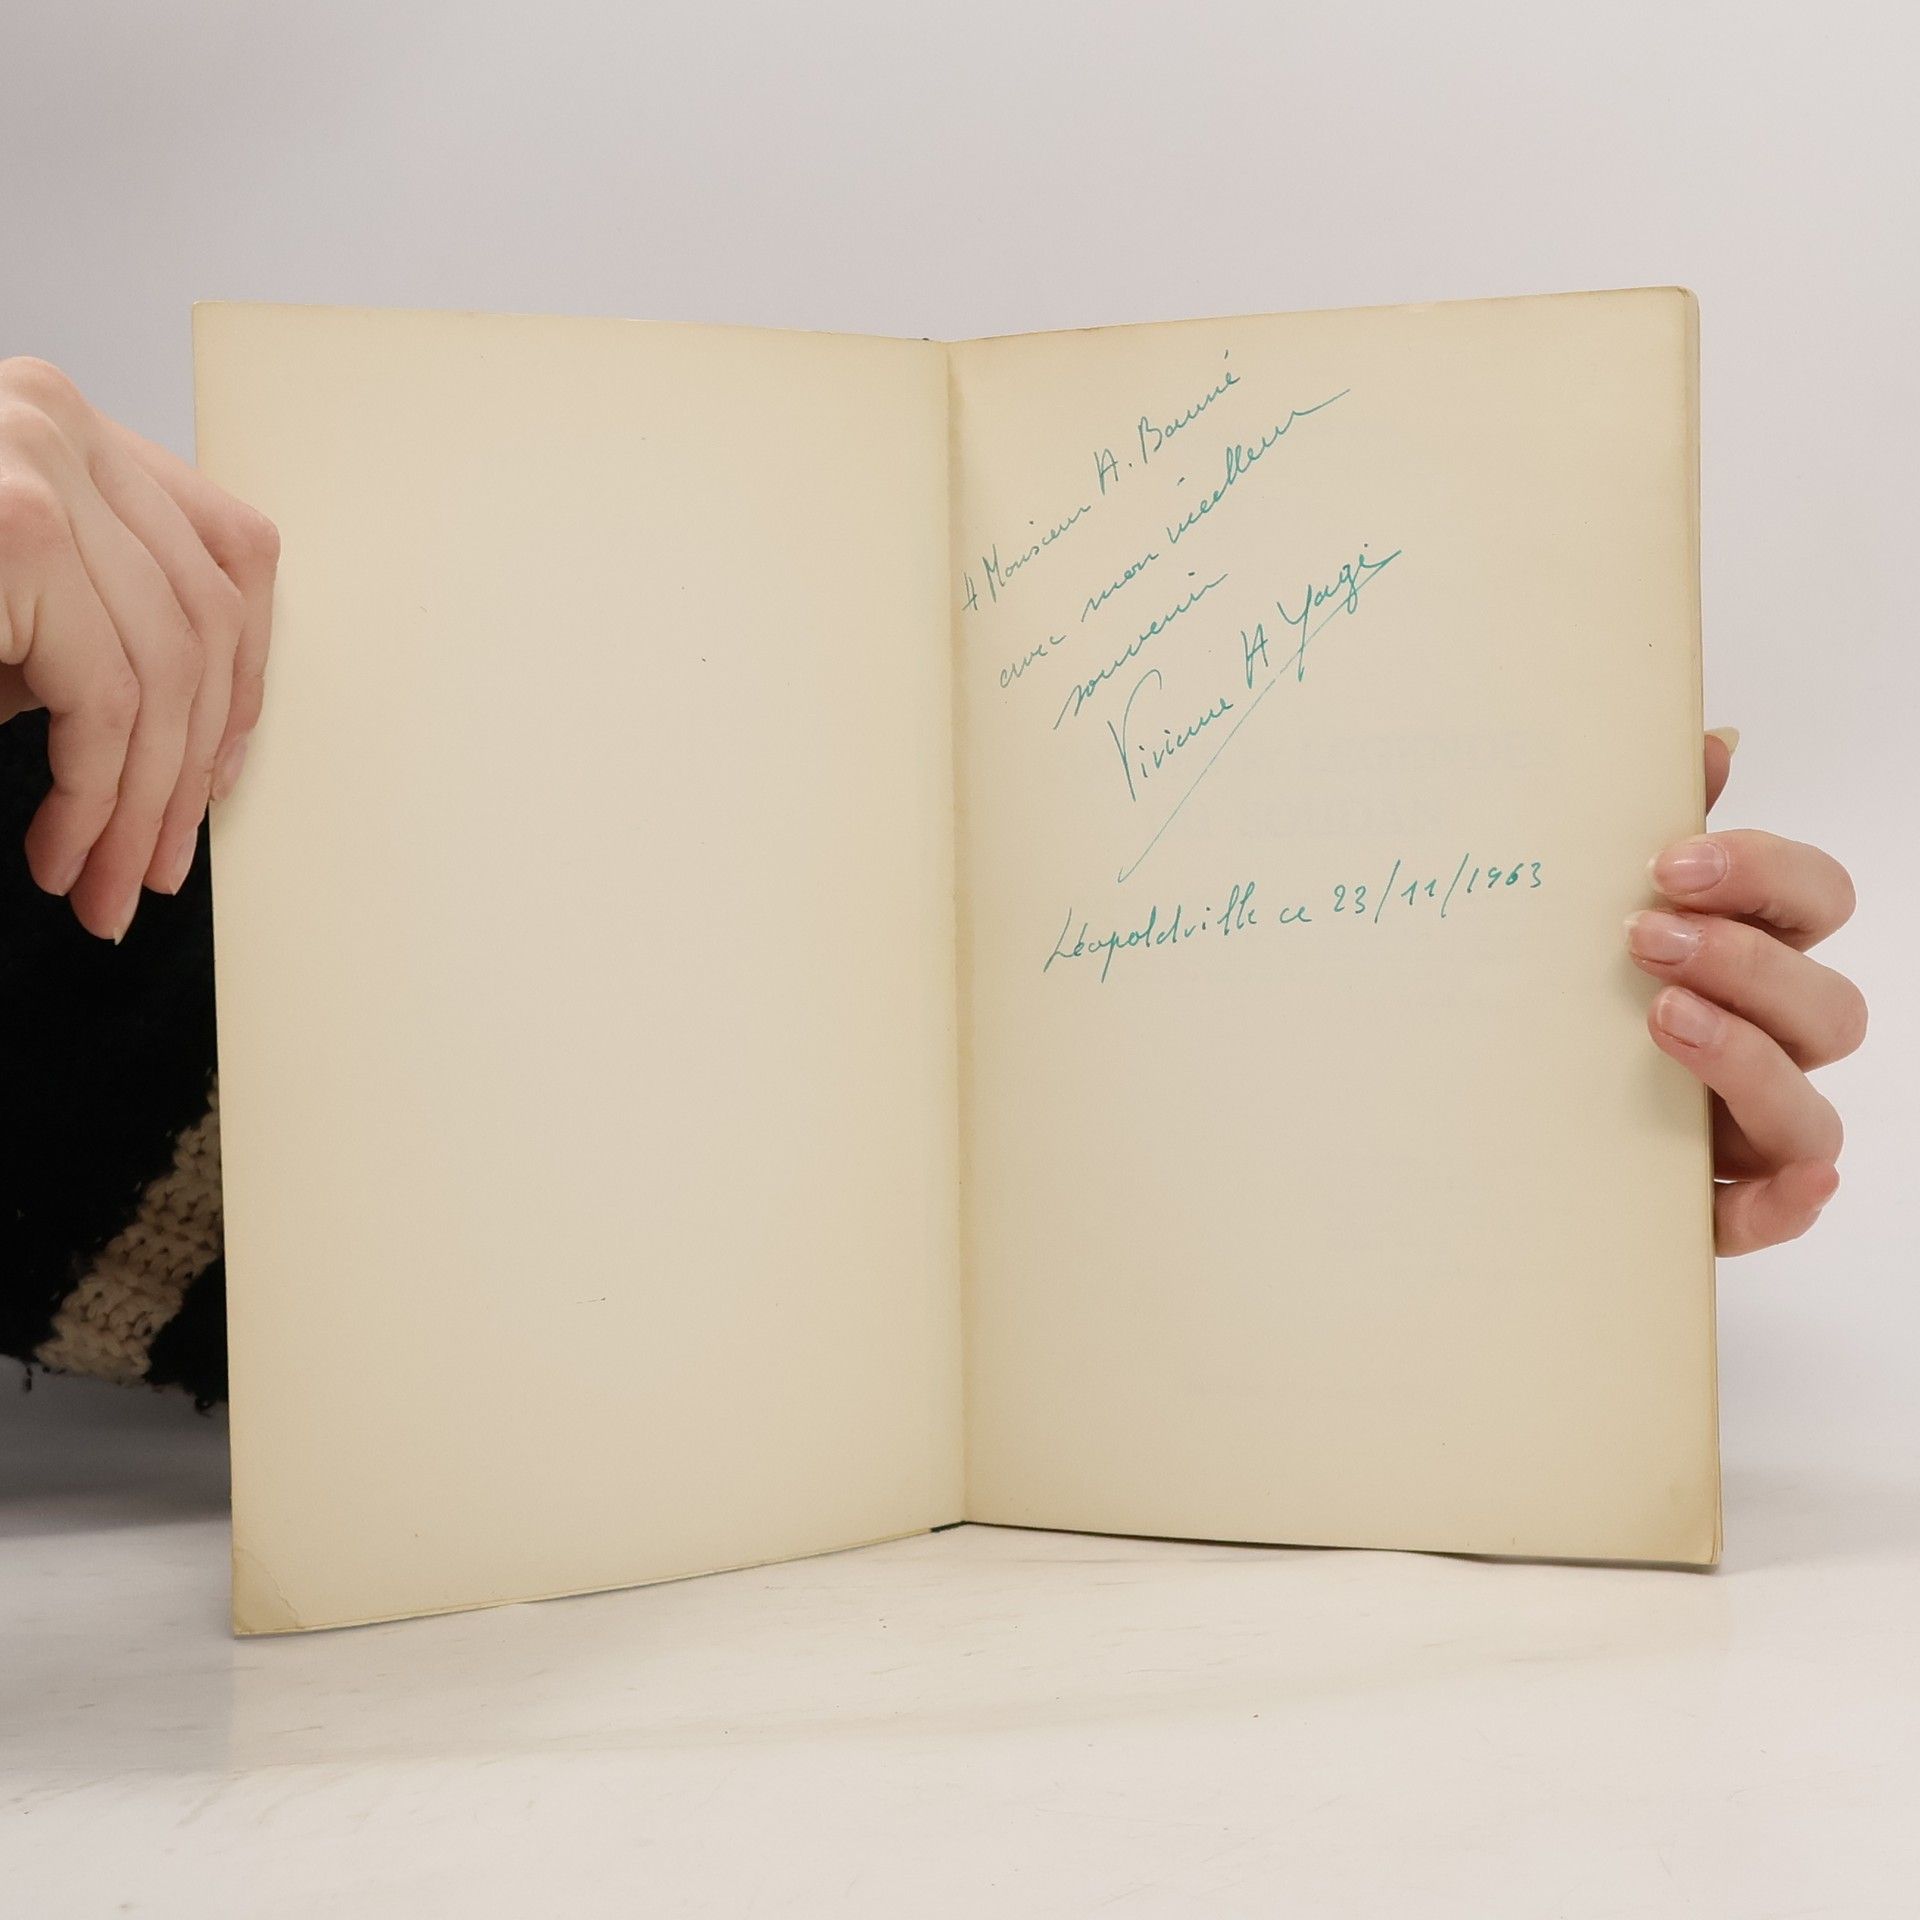 A Monsieur A. Baumé
avec mon meilleur
souvenir
Viviane A Yagi
Léopoldville ce 23/11/1963